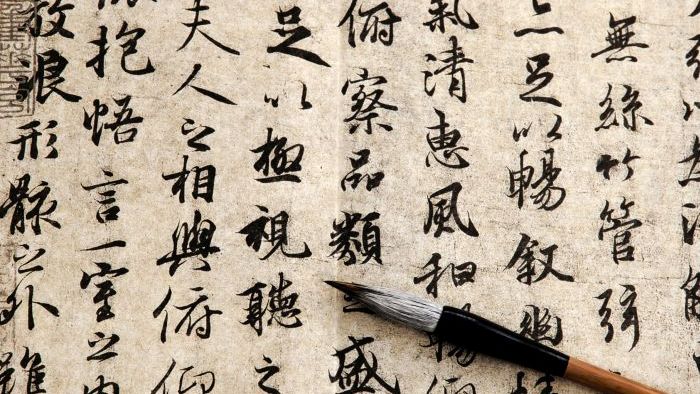 無絲竹管弦
亦足以暢叙幽情
氣清惠風和暢仰
俯察品類之盛
足以極視聽之
夫人之相與俯仰
懷抱悟言一室之内
放浪形骸之外雖